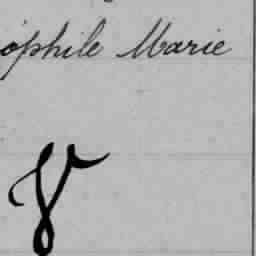 ophile Marie